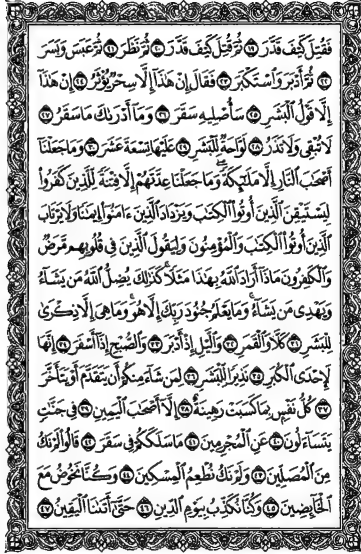 فَقُتِلَ كَيْفَ قَدَّرَ ١٩ ثُمَّ قُتِلَ كَيْفَ قَدَّرَ ٢٠ ثُمَّ نَظَرَ ٢١ ثُمَّ عَبَسَ وَبَسَرَ
٢٢ ثُمَّ أَدْبَرَ وَٱسْتَكْبَرَ ٢٣ فَقَالَ إِنْ هَٰذَآ إِلَّا سِحْرٌ يُؤْثَرُ ٢٤ إِنْ هَٰذَآ
إِلَّا قَوْلُ ٱلْبَشَرِ ٢٥ سَأُصْلِيهِ سَقَرَ ٢٦ وَمَآ أَدْرَىٰكَ مَا سَقَرُ ٢٧
لَا تُبْقِى وَلَا تَذَرُ ٢٨ لَوَّاحَةٌ لِّلْبَشَرِ ٢٩ عَلَيْهَا تِسْعَةَ عَشَرَ ٣٠ وَمَا جَعَلْنَآ
أَصْحَٰبَ ٱلنَّارِ إِلَّا مَلَٰٓئِكَةً وَمَا جَعَلْنَا عِدَّتَهُمْ إِلَّا فِتْنَةً لِّلَّذِينَ كَفَرُوا۟
لِيَسْتَيْقِنَ ٱلَّذِينَ أُوتُوا۟ ٱلْكِتَٰبَ وَيَزْدَادَ ٱلَّذِينَ ءَامَنُوٓا۟ إِيمَٰنًا وَلَا يَرْتَابَ
ٱلَّذِينَ أُوتُوا۟ ٱلْكِتَٰبَ وَٱلْمُؤْمِنُونَ وَلِيَقُولَ ٱلَّذِينَ فِى قُلُوبِهِم مَّرَضٌ
وَٱلْكَٰفِرُونَ مَاذَآ أَرَادَ ٱللَّهُ بِهَٰذَا مَثَلًا كَذَٰلِكَ يُضِلُّ ٱللَّهُ مَن يَشَآءُ
وَيَهْدِى مَن يَشَآءُ وَمَا يَعْلَمُ جُنُودَ رَبِّكَ إِلَّا هُوَ وَمَا هِىَ إِلَّا ذِكْرَىٰ
لِلْبَشَرِ ٣١ كَلَّا وَٱلْقَمَرِ ٣٢ وَٱلَّيْلِ إِذْ أَدْبَرَ ٣٣ وَٱلصُّبْحِ إِذَآ أَسْفَرَ ٣٤ إِنَّهَا
لَإِحْدَى ٱلْكُبَرِ ٣٥ نَذِيرًا لِّلْبَشَرِ ٣٦ لِمَن شَآءَ مِنكُمْ أَن يَتَقَدَّمَ أَوْ يَتَأَخَّرَ
٣٧ كُلُّ نَفْسٍۭ بِمَا كَسَبَتْ رَهِينَةٌ ٣٨ إِلَّآ أَصْحَٰبَ ٱلْيَمِينِ ٣٩ فِى جَنَّٰتٍ
يَتَسَآءَلُونَ ٤٠ عَنِ ٱلْمُجْرِمِينَ ٤١ مَا سَلَكَكُمْ فِى سَقَرَ ٤٢ قَالُوا۟ لَمْ نَكُ
مِنَ ٱلْمُصَلِّينَ ٤٣ وَلَمْ نَكُ نُطْعِمُ ٱلْمِسْكِينَ ٤٤ وَكُنَّا نَخُوضُ مَعَ
ٱلْخَآئِضِينَ ٤٥ وَكُنَّا نُكَذِّبُ بِيَوْمِ ٱلدِّينِ ٤٦ حَتَّىٰٓ أَتَىٰنَا ٱلْيَقِينُ ٤٧